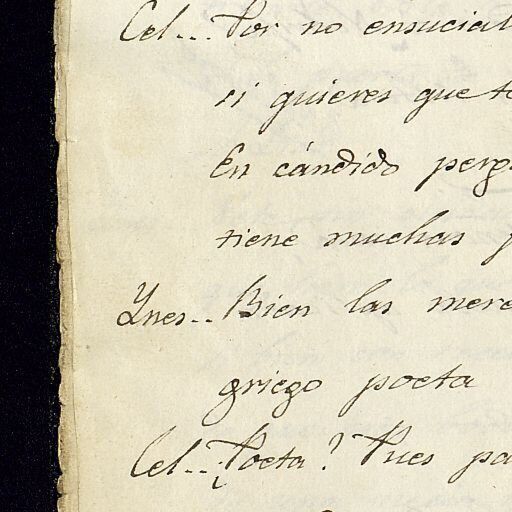 Cel... Por no ensuciar
si quieres que te
En cándido perg
tiene muchas p
Ynes.. Bien las mere
griego poeta
Cel... ¿Poeta? Pues pa